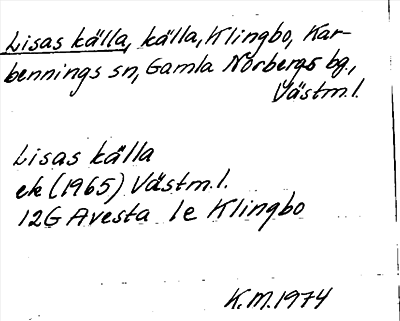 Lisas källa, källa, Klingbo, Kar-
bennings sn, Gamla Norbergs bg.,
Västm.l.
Lisas källa
ek (1965) Västm.l.
12G Avesta 1e Klingbo
K.M. 1974